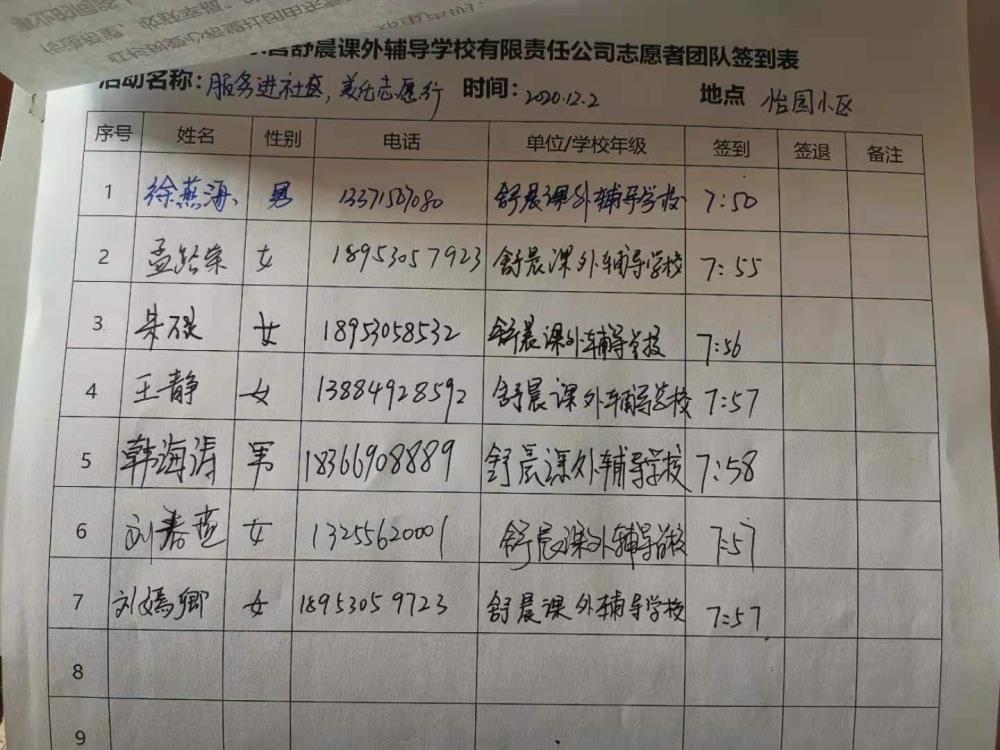 舒晨课外辅导学校有限责任公司志愿者团队签到表
活动名称：服务进社区，美化志愿行 时间：2020.12.2 地点 怡园小区
序号 姓名 性别 电话 单位/学校年级 签到 签退 备注
1 徐燕海 男 13371507080 舒晨课外辅导学校 7:50
2 孟 荣 女 18953057923 舒晨课外辅导学校 7:55
3 朱 女 18953058532 舒晨课外辅导学校 7:56
4 王静 女 13884928592 舒晨课外辅导学校 7:57
5 韩海涛 男 18366908889 舒晨课外辅导学校 7:58
6 刘春燕 女 13255620001 舒晨课外辅导学校 7:57
7 刘嫣卿 女 18953059723 舒晨课外辅导学校 7:57
8
9